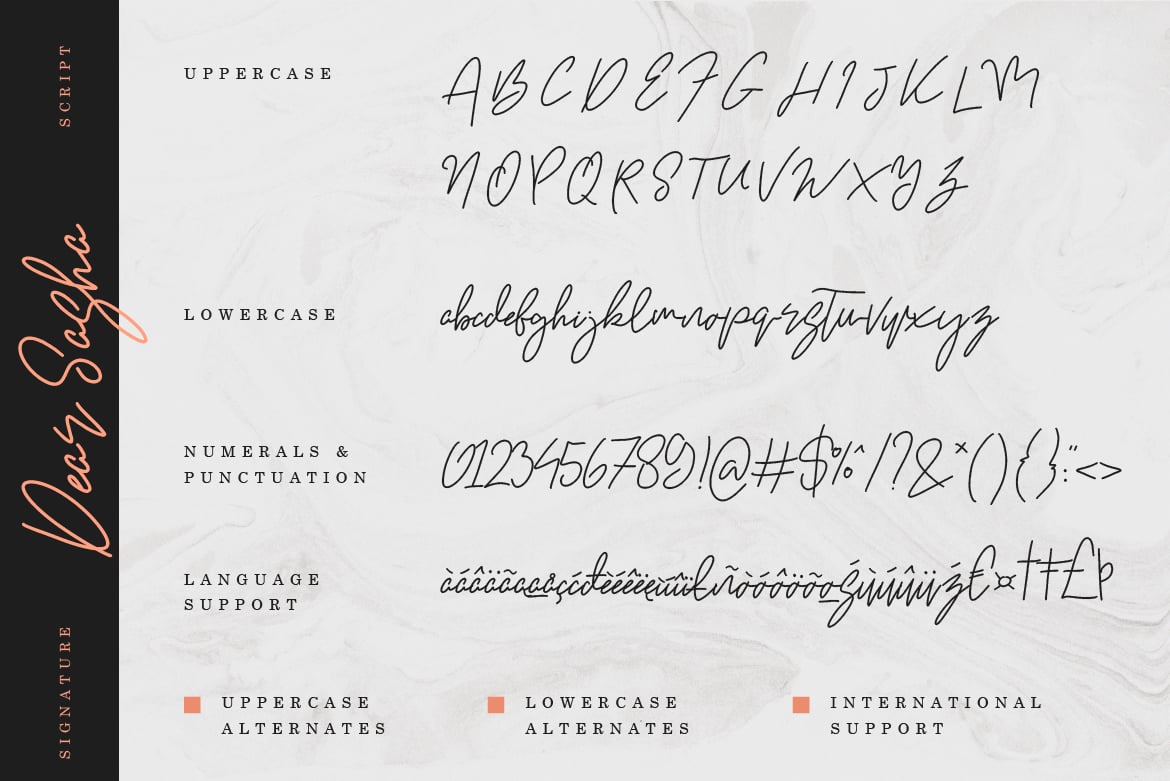 SCRIPT
Dear Sasha
SIGNATURE
UPPERCASE
A B C D E F G H I J K L M
N O P Q R S T U V W X Y Z
LOWERCASE
abcdefghijklmnopqrstuvwxyz
NUMERALS &
PUNCTUATION
0123456789!@#$%^/?&*(){}:"<>
LANGUAGE
SUPPORT
UPPERCASE
ALTERNATES
LOWERCASE
ALTERNATES
INTERNATIONAL
SUPPORT